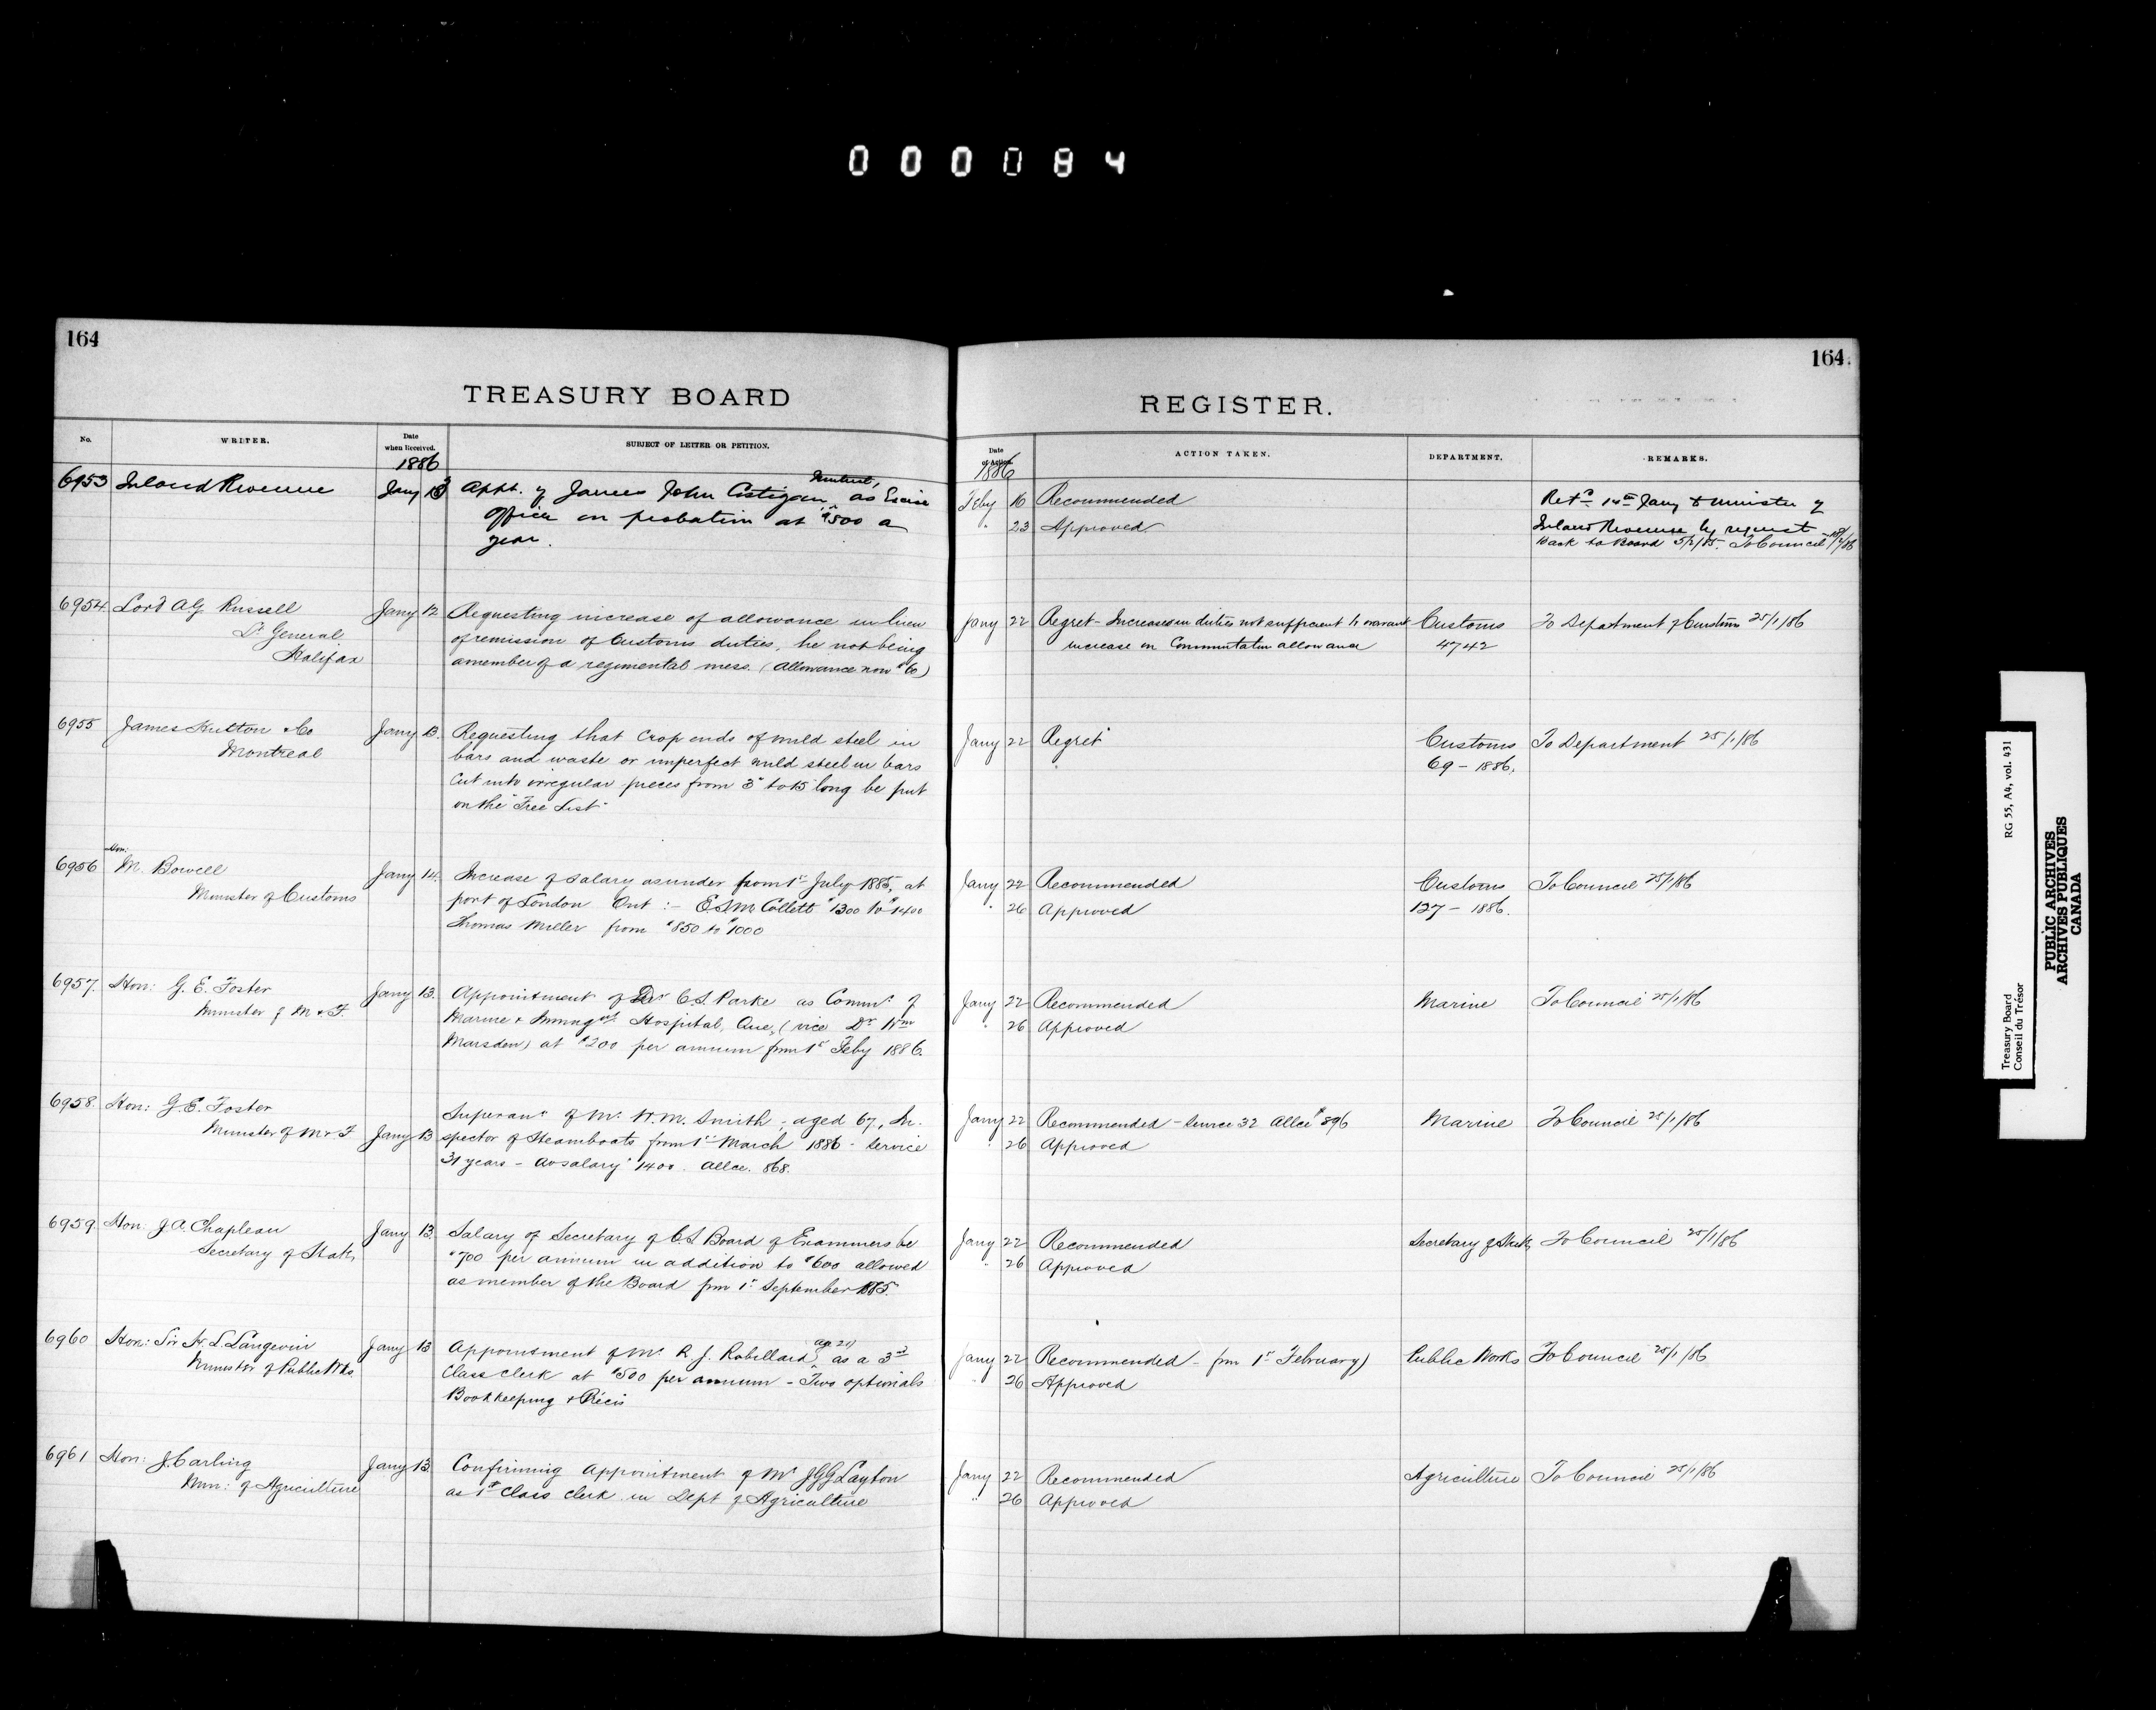 000084
164
164
TREASURY BOARD
REGISTER.
No.
WRITER.
Date when Received.
SUBJECT OF LETTER OR PETITION.
Date of Action.
ACTION TAKEN.
DEPARTMENT.
REMARKS.
1886
1886
6953 Inland Revenue Jany 13 Appt. of James John Costigan, as Excise
Officer on probation at $500 a
year.
Feby 16 Recommended
" 23 Approved
Retd 14th Jany to Minister of
Inland Revenue by request
Back to Board 5/2/85. To Council
6954 Lord A G Russell
Lt General
Halifax
Jany 12 Requesting increase of allowance in lieu
of remission of Customs duties, he not being
a member of a regimental mess. (Allowance now $60)
Jany 22 Regret - Increases in duties not sufficient to warrant
increase in Commutation allowance
Customs
4742
To Department of Customs 25/1/86
6955 James Hutton & Co
Montreal
Jany 13. Requesting that Crop ends of mild steel in
bars and waste or imperfect mild steel in bars
Cut into irregular pieces from 3" to 15" long be put
on the "Free List"
Jany 22 Regret
Customs
69 - 1886.
To Department 25/1/86
6956 Hon: M. Bowell
Minister of Customs
Jany 14. Increase of salary as under from 1st July 1885, at
port of London Ont :- Collett $1300 to $1400
Thomas Miller from $850 to $1000
Jany 22 Recommended
" 26 Approved
Customs
127 - 1886.
To Council 25/1/86
6957. Hon: G. E. Foster
Minister of M & F.
Jany 13. Appointment of Dr C. S. Parke as Commr of
Marine & Immigt Hospital, Que, (vice Dr Wm
Marsden) at $200 per annum from 1st Feby 1886.
Jany 22 Recommended
" 26 Approved
Marine
To Council 25/1/86
6958. Hon: G. E. Foster
Minister of M & F
Jany 13 Superann of Mr W. M. Smith, aged 67, In-
spector of Steamboats from 1st March 1886 - Service
31 years - Av salary $1400. Allce. 868.
Jany 22 Recommended - Service 32 Allce $896
" 26 Approved
Marine
To Council 25/1/86
6959. Hon: J. A. Chapleau
Secretary of State
Jany 13. Salary of Secretary of C.S. Board of Examiners be
$700 per annum in addition to $600 allowed
as member of the Board from 1st September 1885.
Jany 22 Recommended
" 26 Approved
Secretary of State
To Council 25/1/86
6960 Hon: Sir H. L. Langevin
Minister of Public Wks
Jany 13 Appointment of Mr R. J. Robillard (age 21) as a 3rd
Class clerk at $500 per annum - Two optionals
Bookkeeping & Précis
Jany 22 Recommended - from 1st February
" 26 Approved
Public Works
To Council 25/1/86
6961 Hon: J. Carling
Min: of Agriculture
Jany 13. Confirming appointment of Mr J G G Layton
as 1st Class Clerk in Dept of Agriculture
Jany 22 Recommended
" 26 Approved
Agriculture
To Council 25/1/86
Treasury Board RG 55, A4, vol. 431
Conseil du Trésor
PUBLIC ARCHIVES
ARCHIVES PUBLIQUES
CANADA